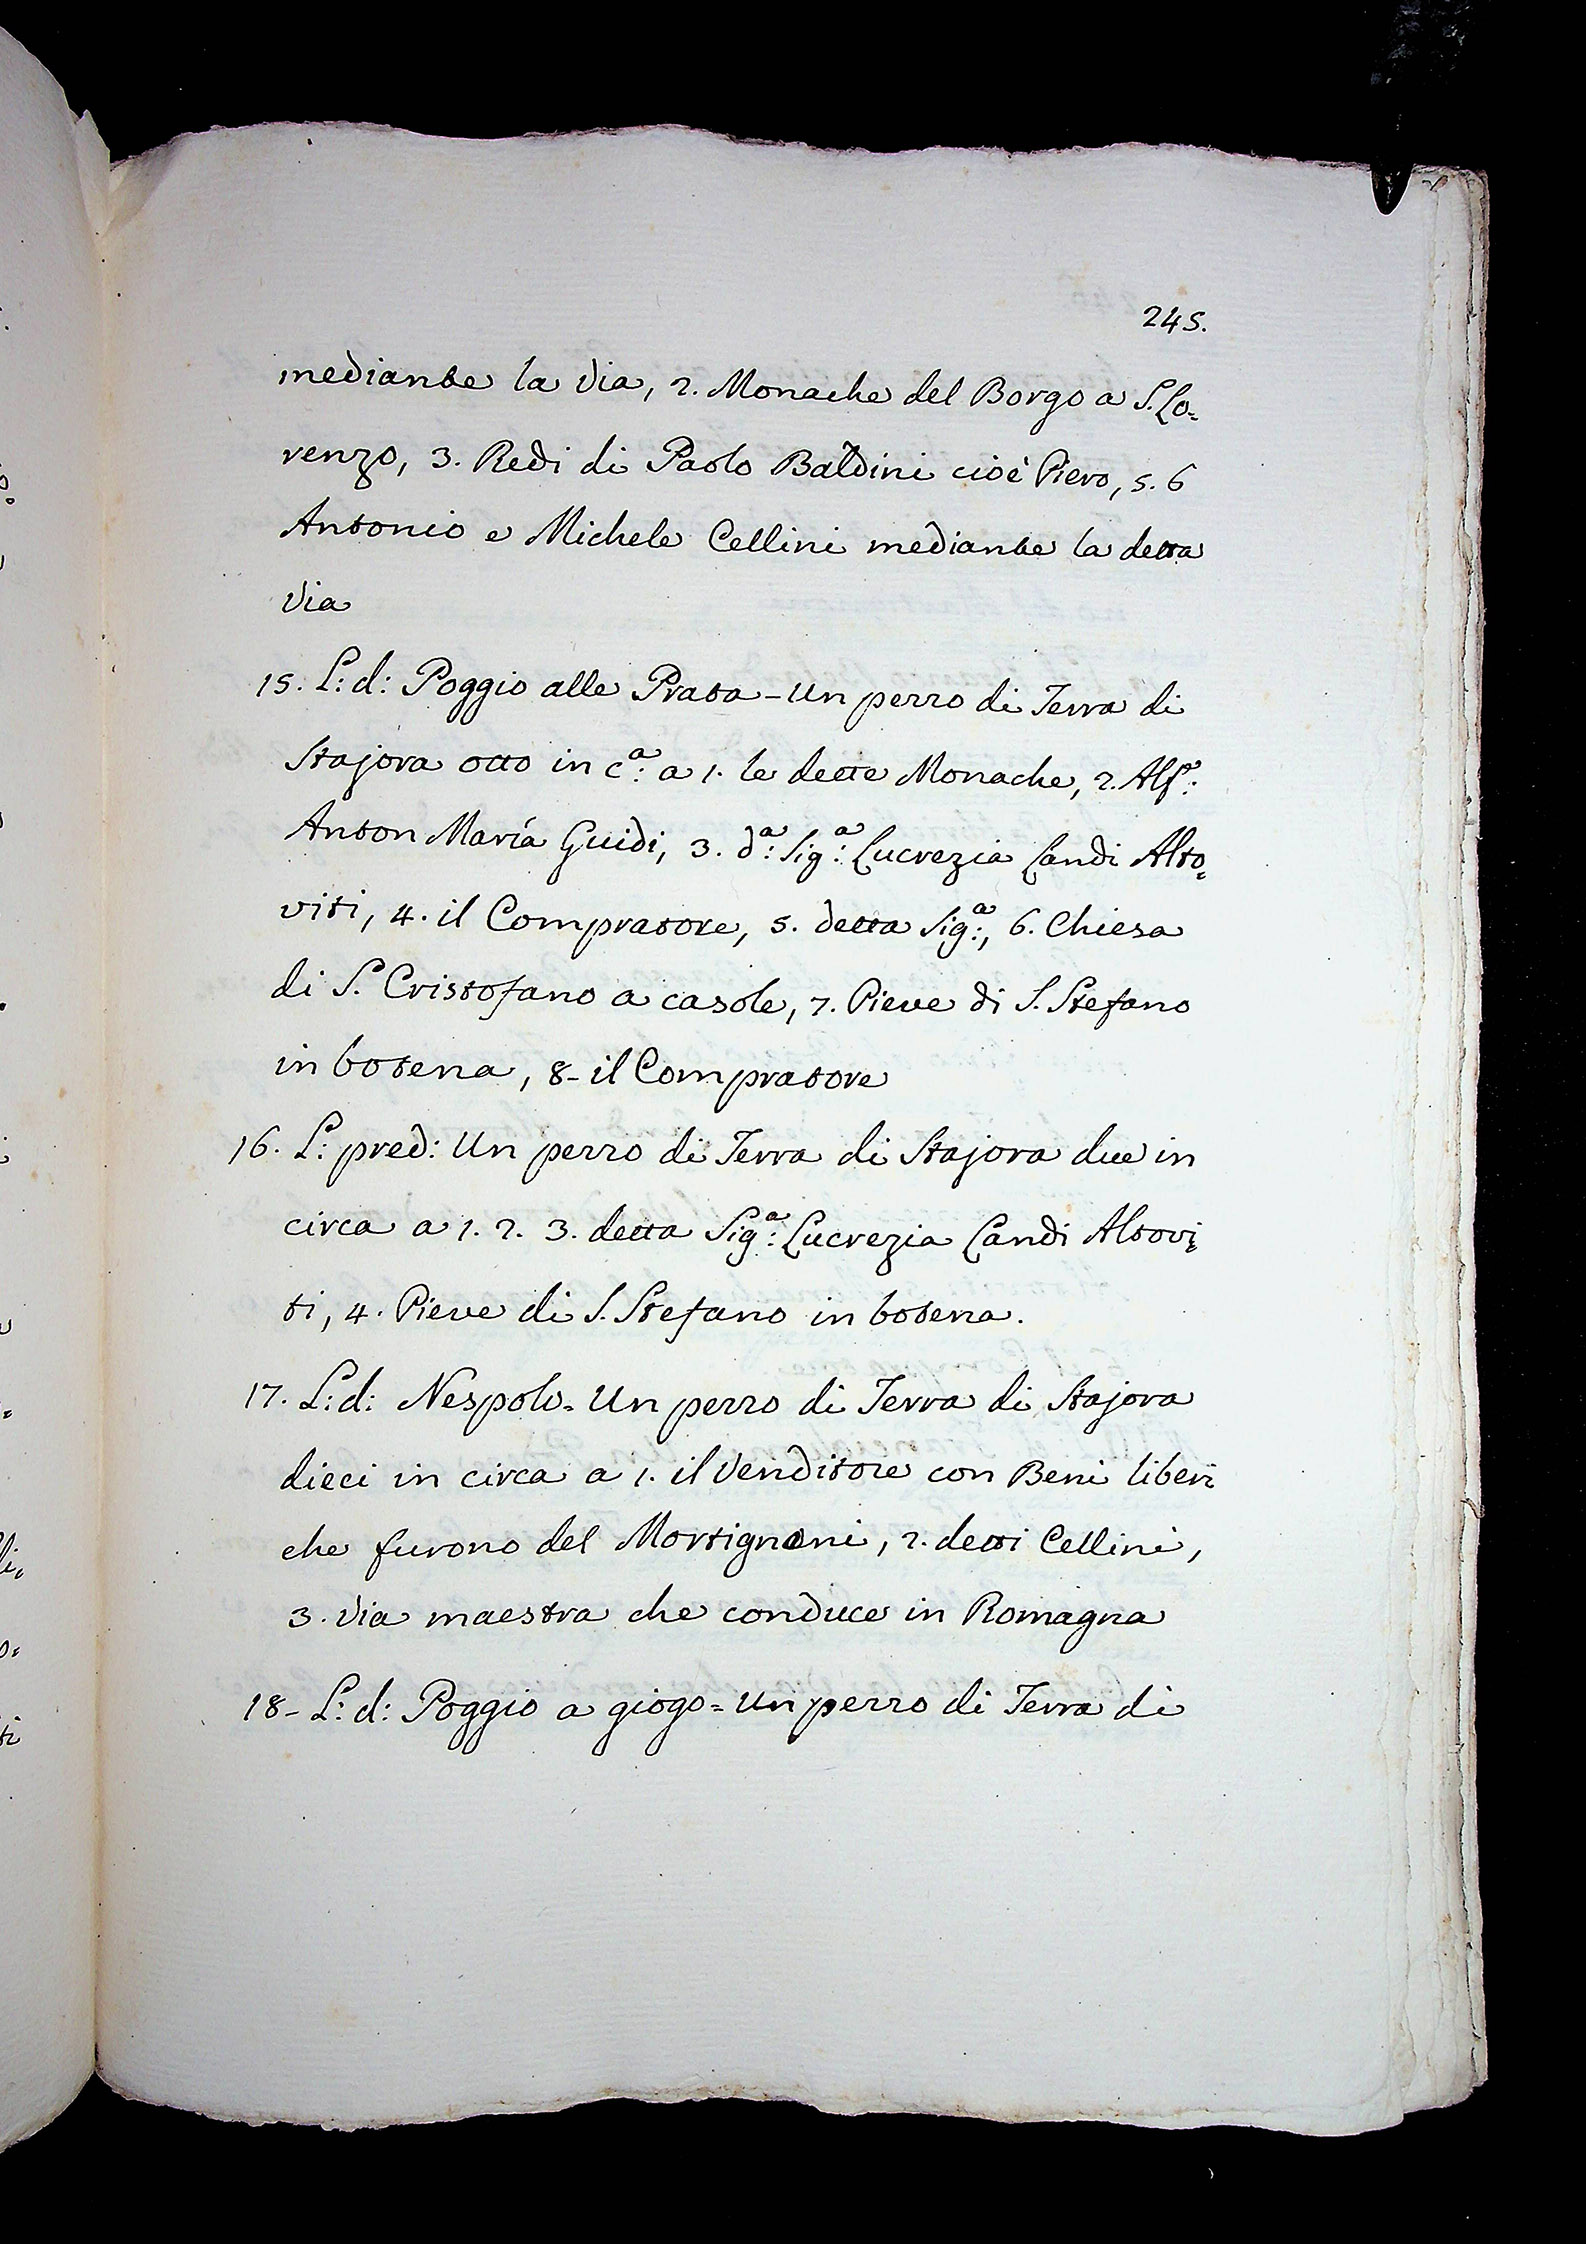 245.
mediante la Via, 2. Monache del Borgo a S. Lo=
renzo, 3. Redi di Paolo Baldini cioè Piero, 5. 6
Antonio e Michele Cellini mediante la detta
Via
15. L: d: Poggio alle Prata - Un pezzo di Terra di
Stajora otto in cª: a 1. le dette Monache, 2. Alfº:
Anton María Guidi, 3. dª: Sigª: Lucrezia Landi Alto=
viti, 4. il Compratore, 5. detta Sigª:, 6. Chiesa
di S. Cristofano a casole, 7. Pieve di S. Stefano
in botena, 8- il Compratore
16. L: pred: Un pezzo di Terra di Stajora due in
circa a 1. 2. 3. detta Sigª: Lucrezia Landi Altovi=
ti, 4. Pieve di S. Stefano in botena.
17. L: d: Nespolo= Un pezzo di Terra di Stajora
dieci in circa a 1. il Venditore con Beni liberi
che furono del Mortignani, 2. detti Cellini,
3. Via maestra che conduce in Romagna
18- L: d: Poggio a giogo= Un pezzo di Terra di